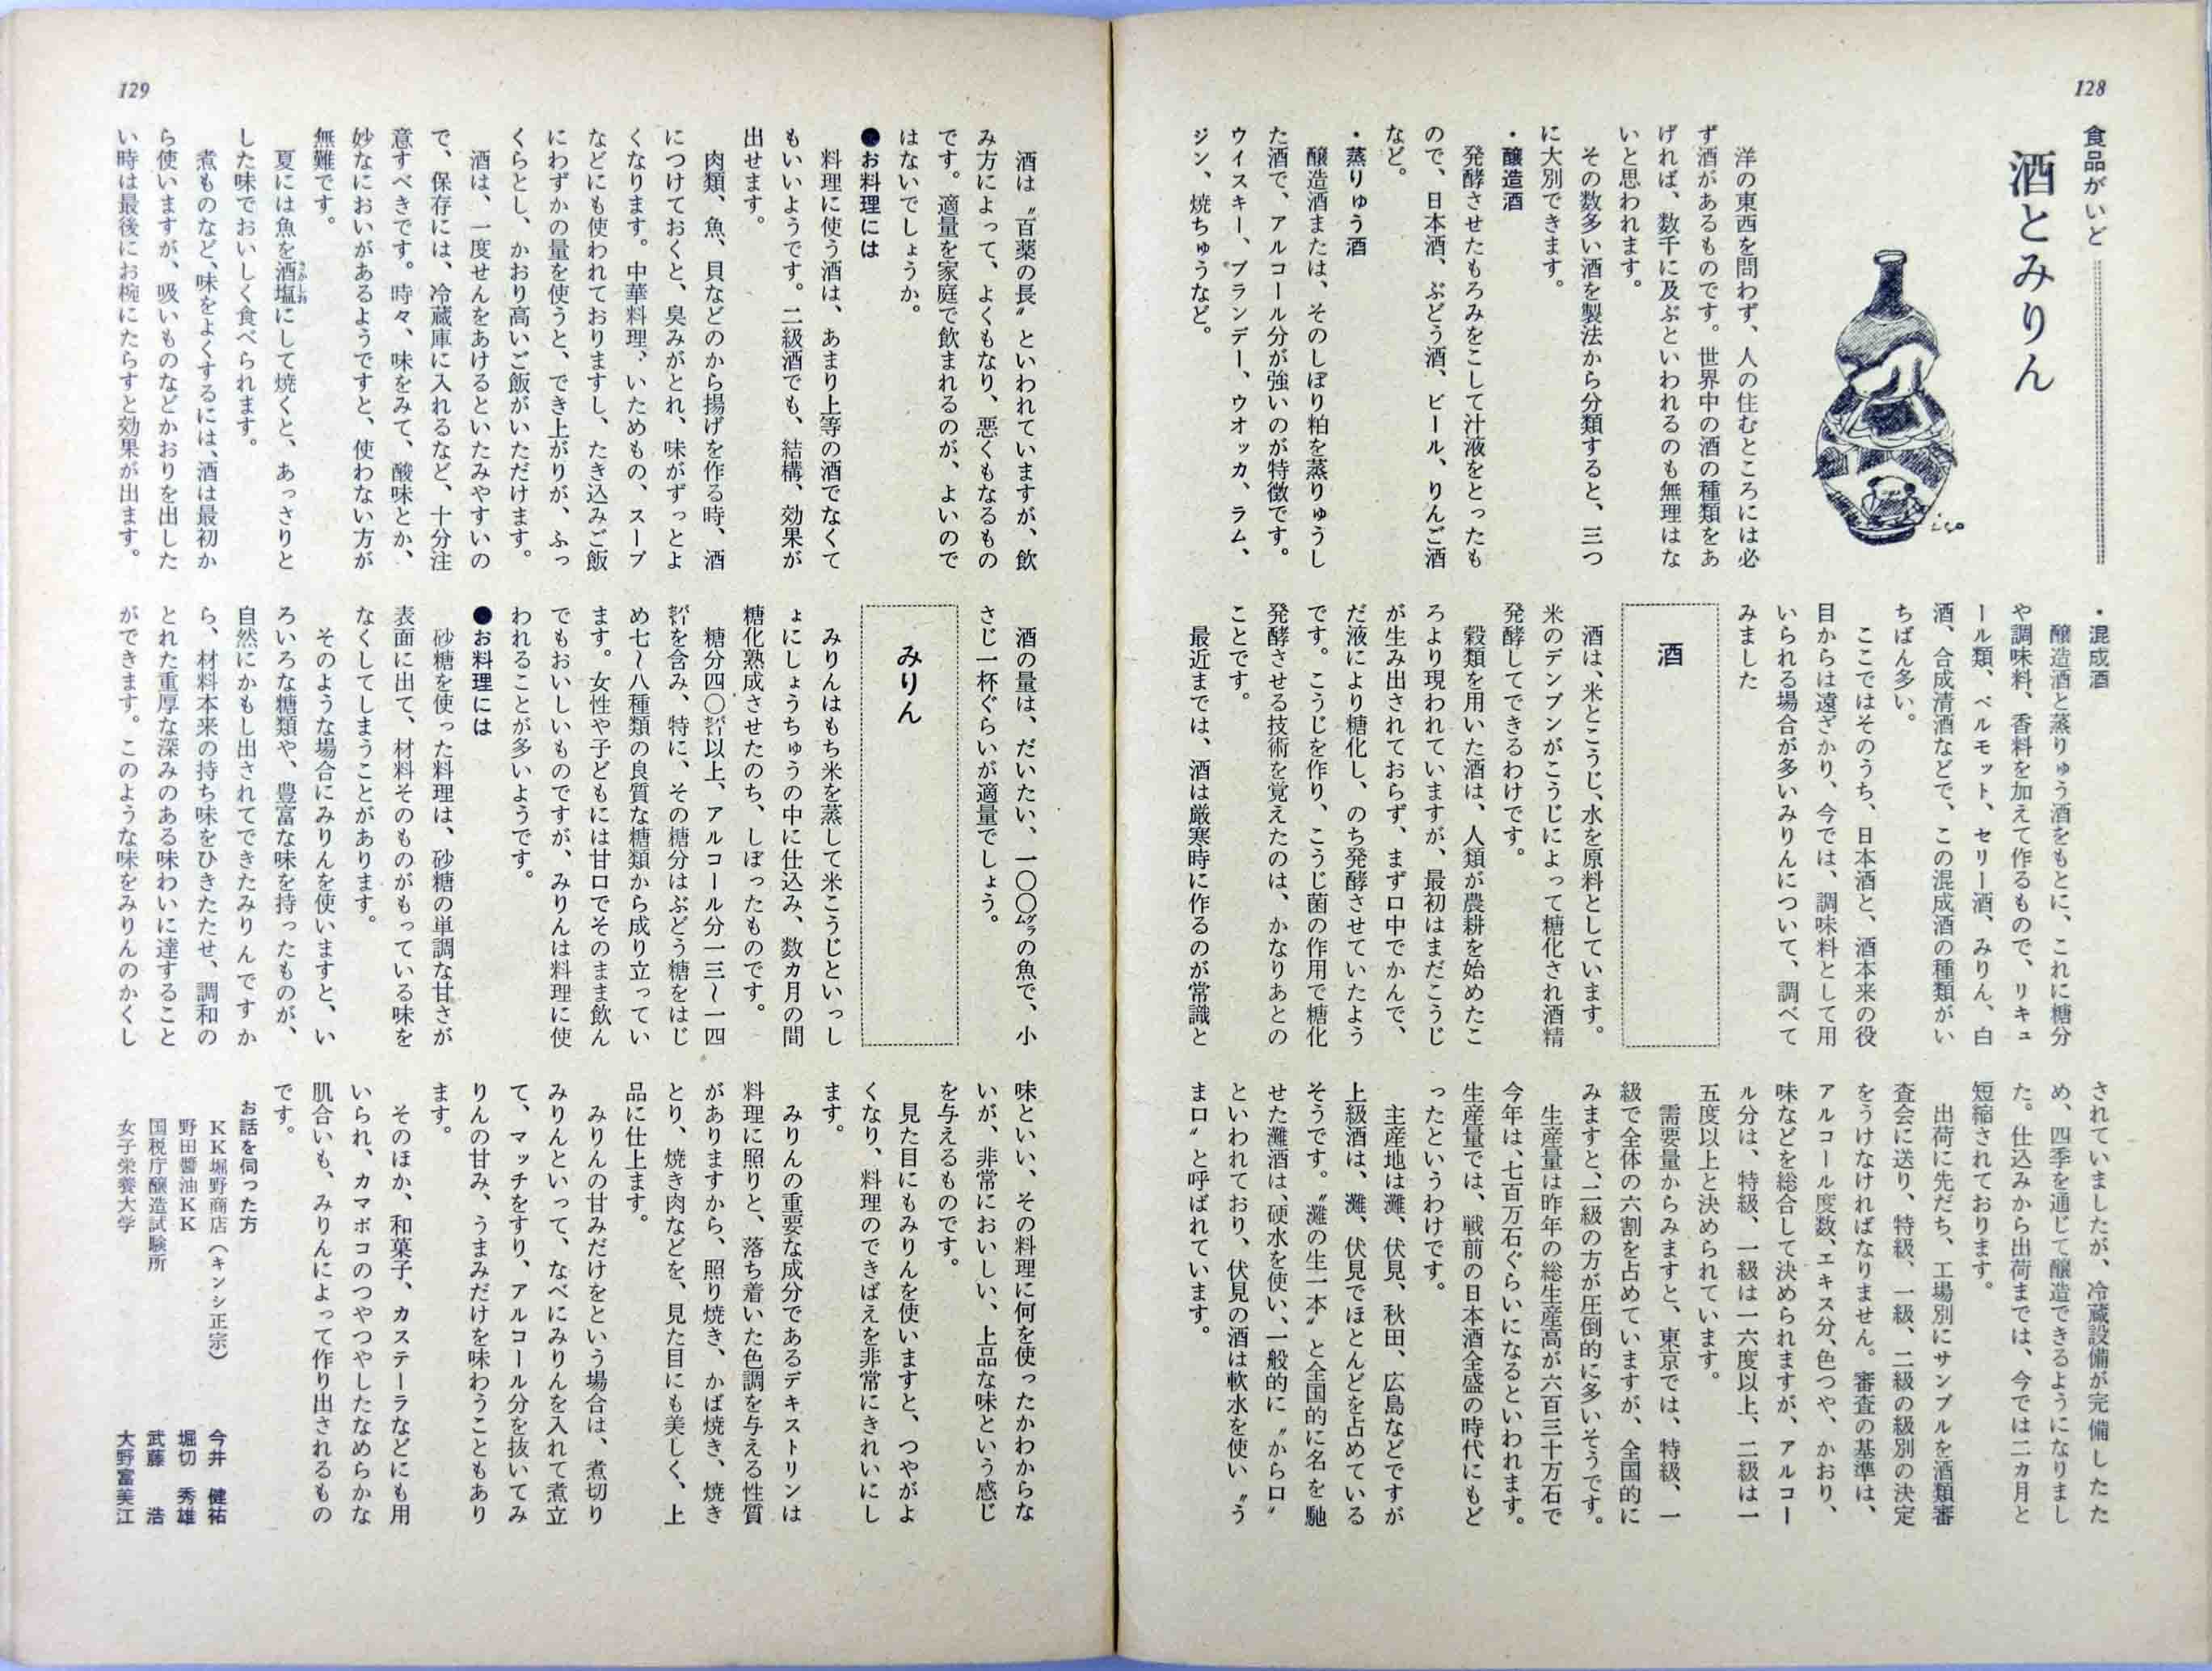 128
食品がいど
酒とみりん
iso
洋の東西を問わず、人の住むところには必
ず酒があるものです。世界中の酒の種類をあ
げれば、数千に及ぶといわれるのも無理はな
いと思われます。
その数多い酒を製法から分類すると、三つ
に大別できます。
・醸造酒
発酵させたもろみをこして汁液をとったも
ので、日本酒、ぶどう酒、ビール、りんご酒
など。
・蒸りゅう酒
醸造酒または、そのしぼり粕を蒸りゅうし
た酒で、アルコール分が強いのが特徴です。
ウイスキー、ブランデー、ウオッカ、ラム、
ジン、焼ちゅうなど。
・混成酒
醸造酒と蒸りゅう酒をもとに、これに糖分
や調味料、香料を加えて作るもので、リキュ
ール類、ベルモット、セリー酒、みりん、白
酒、合成清酒などで、この混成酒の種類がい
ちばん多い。
ここではそのうち、日本酒と、酒本来の役
目からは遠ざかり、今では、調味料として用
いられる場合が多いみりんについて、調べて
みました
酒
酒は、米とこうじ、水を原料としています。
米のデンプンがこうじによって糖化され酒精
発酵してできるわけです。
穀類を用いた酒は、人類が農耕を始めたこ
ろより現われていますが、最初はまだこうじ
が生み出されておらず、まず口中でかんで、
だ液により糖化し、のち発酵させていたよう
です。こうじを作り、こうじ菌の作用で糖化
発酵させる技術を覚えたのは、かなりあとの
ことです。
最近までは、酒は厳寒時に作るのが常識と
されていましたが、冷蔵設備が完備したた
め、四季を通じて醸造できるようになりまし
た。仕込みから出荷までは、今では二カ月と
短縮されております。
出荷に先だち、工場別にサンプルを酒類審
査会に送り、特級、一級、二級の級別の決定
をうけなければなりません。審査の基準は、
アルコール度数、エキス分、色つや、かおり、
味などを総合して決められますが、アルコー
ル分は、特級、一級は一六度以上、二級は一
五度以上と決められています。
需要量からみますと、東京では、特級、一
級で全体の六割を占めていますが、全国的に
みますと、二級の方が圧倒的に多いそうです。
生産量は昨年の総生産高が六百三十万石で
今年は、七百万石ぐらいになるといわれます。
生産量では、戦前の日本酒全盛の時代にもど
ったというわけです。
主産地は灘、伏見、秋田、広島などですが
上級酒は、灘、伏見でほとんどを占めている
そうです。〝灘の生一本〟と全国的に名を馳
せた灘酒は、硬水を使い、一般的に〝から口〟
といわれており、伏見の酒は軟水を使い〝う
ま口〟と呼ばれています。
129
酒は〝百薬の長〟といわれていますが、飲
み方によって、よくもなり、悪くもなるもの
です。適量を家庭で飲まれるのが、よいので
はないでしょうか。
●お料理には
料理に使う酒は、あまり上等の酒でなくて
もいいようです。二級酒でも、結構、効果が
出せます。
肉類、魚、貝などのから揚げを作る時、酒
につけておくと、臭みがとれ、味がずっとよ
くなります。中華料理、いためもの、スープ
などにも使われておりますし、たき込みご飯
にわずかの量を使うと、でき上がりが、ふっ
くらとし、かおり高いご飯がいただけます。
酒は、一度せんをあけるといたみやすいの
で、保存には、冷蔵庫に入れるなど、十分注
意すべきです。時々、味をみて、酸味とか、
妙なにおいがあるようですと、使わない方が
無難です。
夏には魚を酒塩にして焼くと、あっさりと
さかしお
した味でおいしく食べられます。
煮ものなど、味をよくするには、酒は最初か
ら使いますが、吸いものなどかおりを出した
い時は最後にお椀にたらすと効果が出ます。
酒の量は、だいたい、一〇〇グラムの魚で、小
さじ一杯ぐらいが適量でしょう。
みりん
みりんはもち米を蒸して米こうじといっし
ょにしょうちゅうの中に仕込み、数カ月の間
糖化熟成させたのち、しぼったものです。
糖分四〇㌫以上、アルコール分一三～一四
㌫を含み、特に、その糖分はぶどう糖をはじ
め七～八種類の良質な糖類から成り立ってい
ます。女性や子どもには甘口でそのまま飲ん
でもおいしいものですが、みりんは料理に使
われることが多いようです。
●お料理には
砂糖を使った料理は、砂糖の単調な甘さが
表面に出て、材料そのものがもっている味を
なくしてしまうことがあります。
そのような場合にみりんを使いますと、い
ろいろな糖類や、豊富な味を持ったものが、
自然にかもし出されてできたみりんですか
ら、材料本来の持ち味をひきたたせ、調和の
とれた重厚な深みのある味わいに達すること
ができます。このような味をみりんのかくし
味といい、その料理に何を使ったかわからな
いが、非常においしい、上品な味という感じ
を与えるものです。
見た目にもみりんを使いますと、つやがよ
くなり、料理のできばえを非常にきれいにし
ます。
みりんの重要な成分であるデキストリンは
料理に照りと、落ち着いた色調を与える性質
がありますから、照り焼き、かば焼き、焼き
とり、焼き肉などを、見た目にも美しく、上
品に仕上ます。
みりんの甘みだけをという場合は、煮切り
みりんといって、なべにみりんを入れて煮立
て、マッチをすり、アルコール分を抜いてみ
りんの甘み、うまみだけを味わうこともあり
ます。
そのほか、和菓子、カステーラなどにも用
いられ、カマボコのつやつやしたなめらかな
肌合いも、みりんによって作り出されるもの
です。
お話を伺った方
KK堀野商店（キンシ正宗） 今井 健祐
野田醬油KK 堀切 秀雄
国税庁醸造試験所 武藤 浩
女子栄養大学 大野富美江